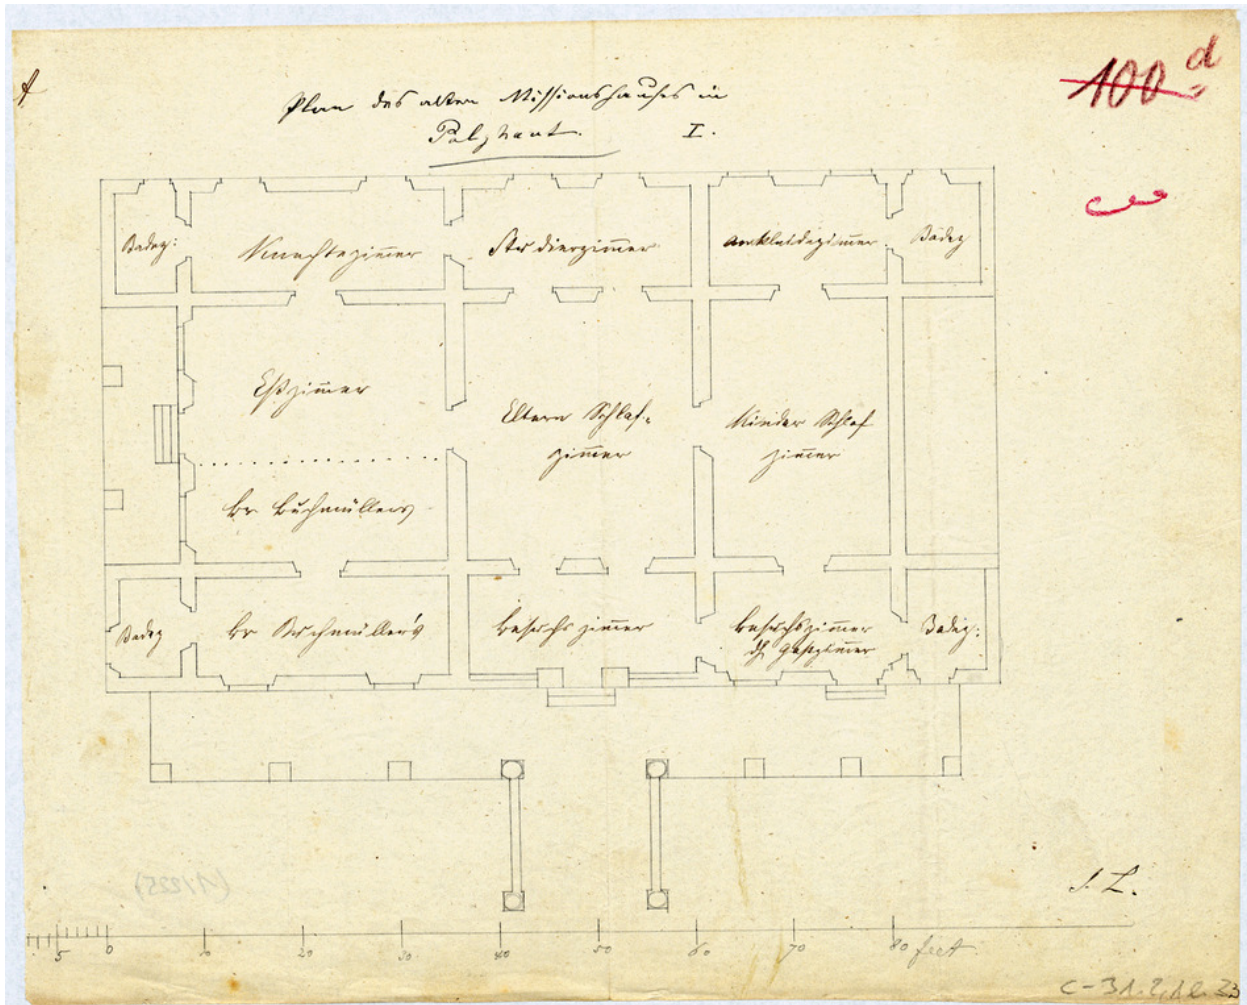 Plan des alten Missionshauses in
Palghaut. I.
100 d
Badez:
Knechtezim̄er
Studierzim̄er
Ankleidezim̄er
Badez
Eßzim̄er
Eltern Schlaf-
zim̄er
Kinder Schlaf
zim̄er
br Buchmüllers
Badez
br Buchmüller's
Besuchszim̄er
Besuchszim̄er
Gastzim̄er
Badez:
J. L.
5 0 10 20 30 40 50 60 70 80 feet